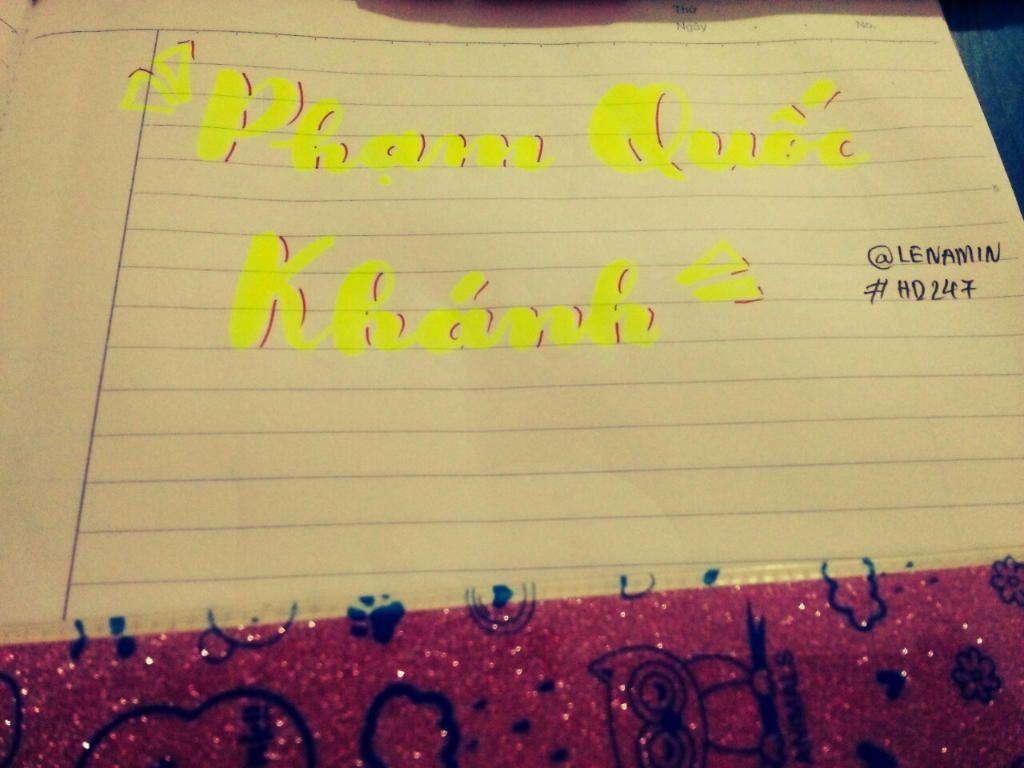 Thứ
Ngày No.
Phạm Quốc
Khánh
@LENAMIN
#HD247
5
ANIMALS